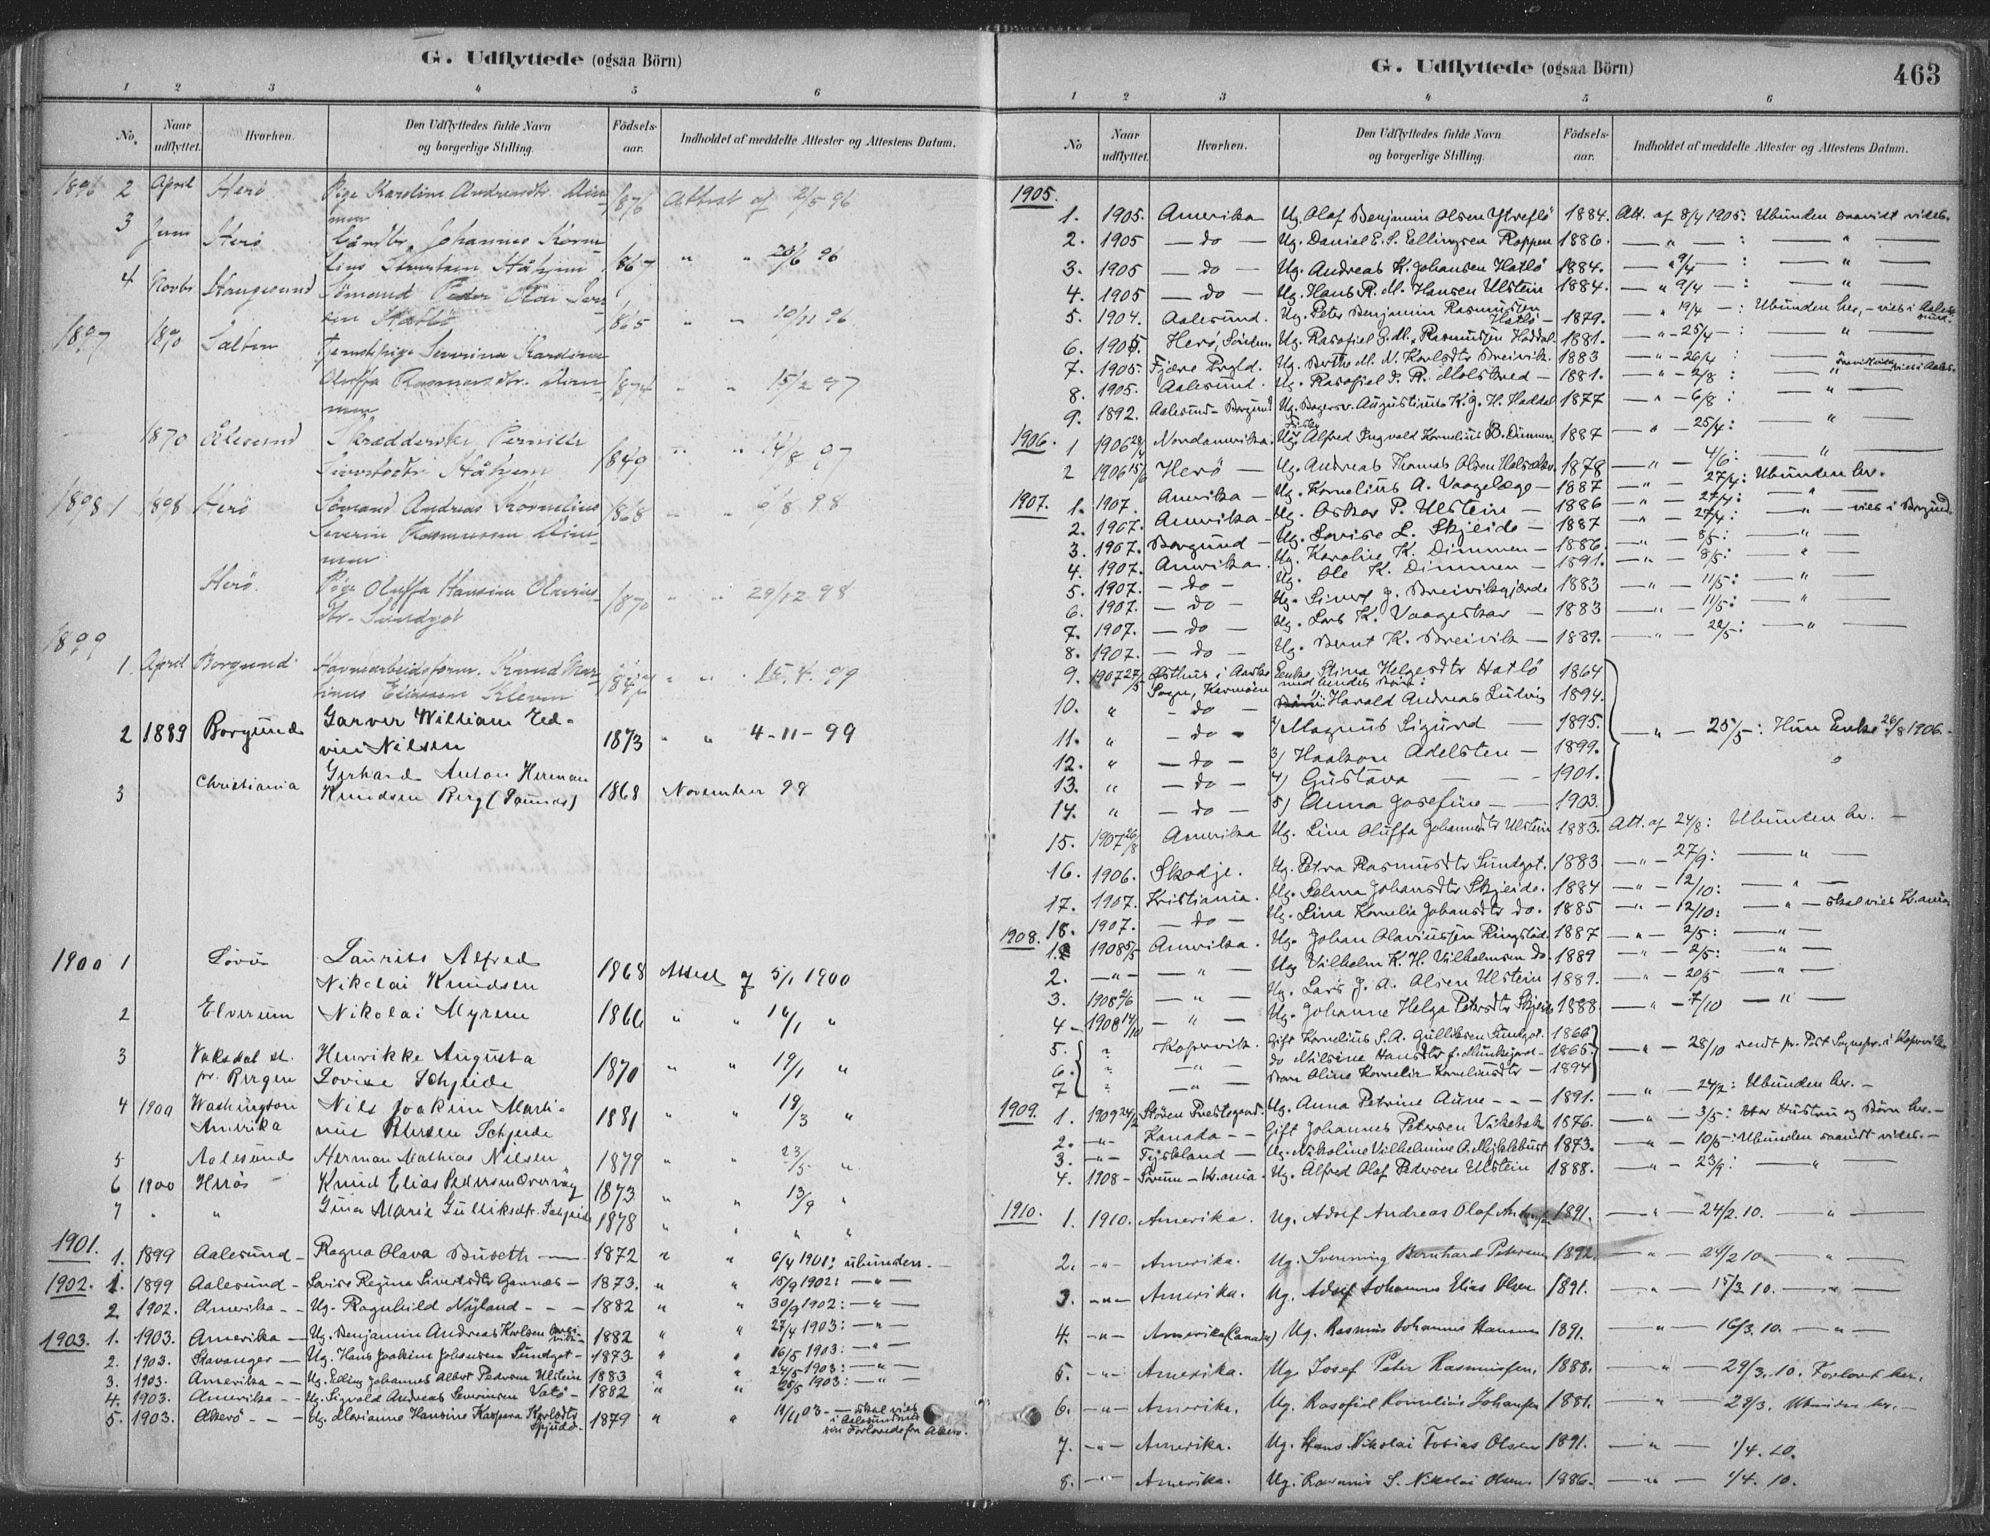 G. Udflyttede (ogsaa Börn)
1 2 3 4 5 6
No. Naar udflyttet. Hvorhen. Den Udflyttedes fulde Navn og borgerlige Stilling. Födsels-aar. Indholdet af meddelte Attester og Attestens Datum.
1896 2 April Herö Pige Karoline Dim-
men 1876 Attest af 2/5 96
3 Juni Herö Johannes Korne-
lius Håhjem 1867 " " 96
4 Novbr Sömand Peder Olai
Hatlö 1865 " " 10/11 96
1897 1890 Salten Tjenestepige Severine Karoline
Oluffa Rasmusdtr. Dim-
men 1874 " " 15/2 97
1870 Ålesund Skrædderske Pernille
Sivertsdtr Håhjem 1849 " " 14/8 97
1898 1 1898 Herö Sömand Andreas Kornelius
Severin Rasmussen Dim-
men 1868 " " /8 98
Herö. Pige Oluffa Hansine Olavius-
dtr. Sundgot 1870 " " 29/12 98
1899
1 April Borgund Havnearbeidsform. Knud Mar-
tinus Eliassen Kleven " " 15. 4. 99
2 1889 Borgund Garver William Ed-
vin Nilsen 1873 " " 4-11-99
3 Christiania Gerhard Anton Herman
Knudsen Berg 1868 November 99
1900 1 Laurits Alfred
Nikolai Knudsen 1868 Attest af 5/1 1900
2 Elverum Nikolai Myrene 1866 " " 14/1 "
3 Vaksdal st. Henrikke Augusta
pr. Bergen Lovise Schjeide 1870 " " 19/1 "
4 1900 Washington Nils Joakim Marti-
Amerika nus Petersen Schjeide 1881 " " 19/3 "
5 Aalesund Herman Mathias Nilsen 1879 " " 23/5 "
6 1900 Herös Knud Elias Pedersen Overvåg 1873 " " 13/9 "
7 " " Gina Marie Gulliksdtr. Schjeide 1878 " " "
1901. 1. 1899 Aalesund – Ragna Olava Buseth — 1872 " " 6/4 1901: ubunden. –
1902. 1. 1899 Aalesund – Lovise Regina Sivertsdtr Garnæs – 1873. " " 15/9 1902: — " —
2. 1902. Amerika – – Ug. Ragnhild Nyland – – – 1882 " " 30/9 1902: — " —
1903. 1. 1903. Amerika – Ug. Benjamin Andreas Karlsen Brei-
vik – 1882 " " 27/4 1903: — " —
2. 1903. Stavanger – Ug. Hans Joakim Johansen Sundgot – 1873 " " 16/5 1903: — " —
3. 1903. Amerika – – Ug. Elling Johannes Albert Pedersen Ulstein 1883 " " 24/5 1903: — " —
4. 1903. Amerika – – Ug. Sigvald Andreas Severinsen Vatö – 1882 " " 25/5 1903: — " —
5. 1903. Akerö – – – Ug. Marianne Hansine Kaspara Karlsdtr
1879 " " 11/11 03 – – skal vies
i Aalesund med
sin Forlovede fra Akerö.
G. Udflyttede (ogsaa Börn) 463
1 2 3 4 5 6
No Naar udflyttet. Hvorhen. Den Udflyttedes fulde Navn og borgerlige Stilling. Födsels-aar. Indholdet af meddelte Attester og Attestens Datum.
1905.
1. 1905. Amerika Ug. Olaf Benjamin Olsen Ytreflö 1884. Att. af 8/4 1905: Ubunden saavidt vides.
2. 1905 — do — Ug. Daniel E. S. Ellingsen Roppen 1886. — " — : — " —
3. 1905 — do — Ug. Andreas K. Johansen Hatlö 1884. — " 9/4 — : — " —
4. 1905 — do — Ug. Hans R. M. Hansen Ulstein 1884. — " 9/4 — : — " —
5. 1904. Aalesund. Ug. Peter Benjamin Rasmussen
Hatlö – 1879. — " 19/4 — : Ubunden her, – vies i Aale-
sund.
6. 1905. Herö, Söndm. Ug. Rasofiel G. M. Rasmussen Haddal. 1881. — " – 25/4 — : — " —
7. 1905. Fjære Ug. Berthe M. N. Karlsdtr Breivik. 1883 — " – 26/4 — " —
8. 1905. Aalesund. Ug. Rasofiel J. R. Molstred – 1881. — " – 2/8 : — " — vies i Aales.
9. 1892. Aalesund – Borgund Ug. Bagersv. Augustinus K. J. H. Haddal 1877 — " – 6/8 : — " —
1906. 1 1906 28/4 Nordamerika. Ug. Fisker Alfred Ingvald Kornelius B. Dimmen 1887 — " – 25/4: — " —
2 1906 15/6 Herö — Ug. Andreas Thomas Olsen 1878 — " – 4/6: — " —
1907. 1. 1907. Amerika – Ug. Kornelius A. Vaagelæge – 1887 — " – 27/4: Ubunden her.
2. 1907. Amerika – Ug. Oskar P. Ulstein – 1886 — " – 27/4: — " —
3. 1907. Borgund – Ug. Lovise L. Skjeide – 1887 — " – 27/4: — " — vies i Borgund.
4. 1907. Amerika. Ug. Karoline K. Dimmen – 1886. — " – 8/5: — " —
5. 1907. — do — Ug. Ole K. Dimmen – 1891. — " – 8/5: — " —
6. 1907. — do — Ug. Sivert J. Breiviksgjærde 1883 — " – 11/5: — " —
7. 1907. — do — Ug. Lars K. Vaageskar – 1883 — " – 11/5: — " —
8. 1907. — do — Ug. Bernt K. Breivik – 1889. — " – 22/5: — " —
9. 1907 27/5 Østhus i Sogn, Karmöen Enke Stina Helgesdtr Hatlö 1864
med hendes Börn:
10. " – do – 1) Harald Andreas Ludvig 1894.
11. " – do – 2) Magnus Sigurd — 1895. — " – 25/5: Hun Enke 26/8 1906. –
12. " – do – 3) Haakon Adelsten – 1899. "
13. " – do – 4) Gustava — 1901.
14. " – do – 5) Anna Josefine – – 1903.
15. 1907 26/8 Amerika Ug. Lina Oluffa Johannesdtr Ulstein 1883. Att. af 24/8: Ubunden her. –
16. 1906. Skodje. Ug. Petra Rasmusdtr Sundgot. 1883 — " – 27/9: — " —
17. 1907. Kristiania. Ug. Selma Johansdtr Skjeide. 1884 — " – 12/10: — " —
18. 1907. — do — Ug. Lina Kornelia Johansdtr do. 1885 — " – 12/10: — " – skal vies K.ania.
1908. 1. 1908 5/5 Amerika. Ug. Johan Olaviussen Ringstad. 1887 — " – 2/5: — " —
2. — " — — " — Ug. Vilhelm K. H. Vilhelmsen do 1889 — " – 2/5: — " —
3. 1908 2/6 — " — Ug. Lars J. A. Olsen Ulstein 1889. — " – 20/5 — " —
4 – 1908 14/10 — " — Ug. Johanne Helga Petersdtr Skjeide 1888. — " – 7/10 — " —
5. " Kopervik. Gift Kornelius S. A. Gulliksen Sundgot. 1866
6. " — " — do Nilsine Hansdtr f. Munkejord – 1865. — " – 28/10 sendt pr. Post Sognepr. i Kopervik
7 " — " — Barn Aline Kornelia Korneliusdtr – 1894
1909. 1. 1909 24/2 Skoien Præstegaard. Ug. Anna Petrine Aune – – – 1891. — " – 24/2: Ubunden her. –
2. – " – Kanada – – Gift Johannes Petersen Vikebak 1876. — " – 3/5: Har Hustru og Børn her. –
3. – " – Tyskland – Ug. Nikoline Vilhelmine A. Myklebust 1873. — " – 10/5: Ubunden saavidt vides. –
4. 1908 – K.ania. Ug. Alfred Olaf Pedersen Ulstein 1888. — " – 23/9: — " —
1910. 1. 1910. Amerika. Ug. Adolf Andreas Olaf 1891. — " — 24/2. 10. — " —
2. – " – Amerika. Ug. Svenning Bernhard Petersen 1892. — " — 24/2 10. — " —
3. – " – Amerika. Ug. Adolf Johannes Elias Olsen 1891. — " — 15/3 10. — " —
4. – " – Amerika (Canada) Ug. Rasmus Johannes Hansen 1891. — " — 16/3. 10. — " —
5. – " – Amerika. Ug. Josef Peter Rasmussen. 1888. — " — 29/3. 10. Forlovet her.
6. – " – Amerika. Ug. Rasofiel Kornelius Johansen 1881. — " — 29/3. Ubunden her. –
7. – " – Amerika. Ug. Hans Nikolai Tobias Olsen 1891. — " — 1/4. 10.
8. – " – Amerika. Ug. Rasmus S. Nikolai Olsen. 1886. — " — 1/4. 10.